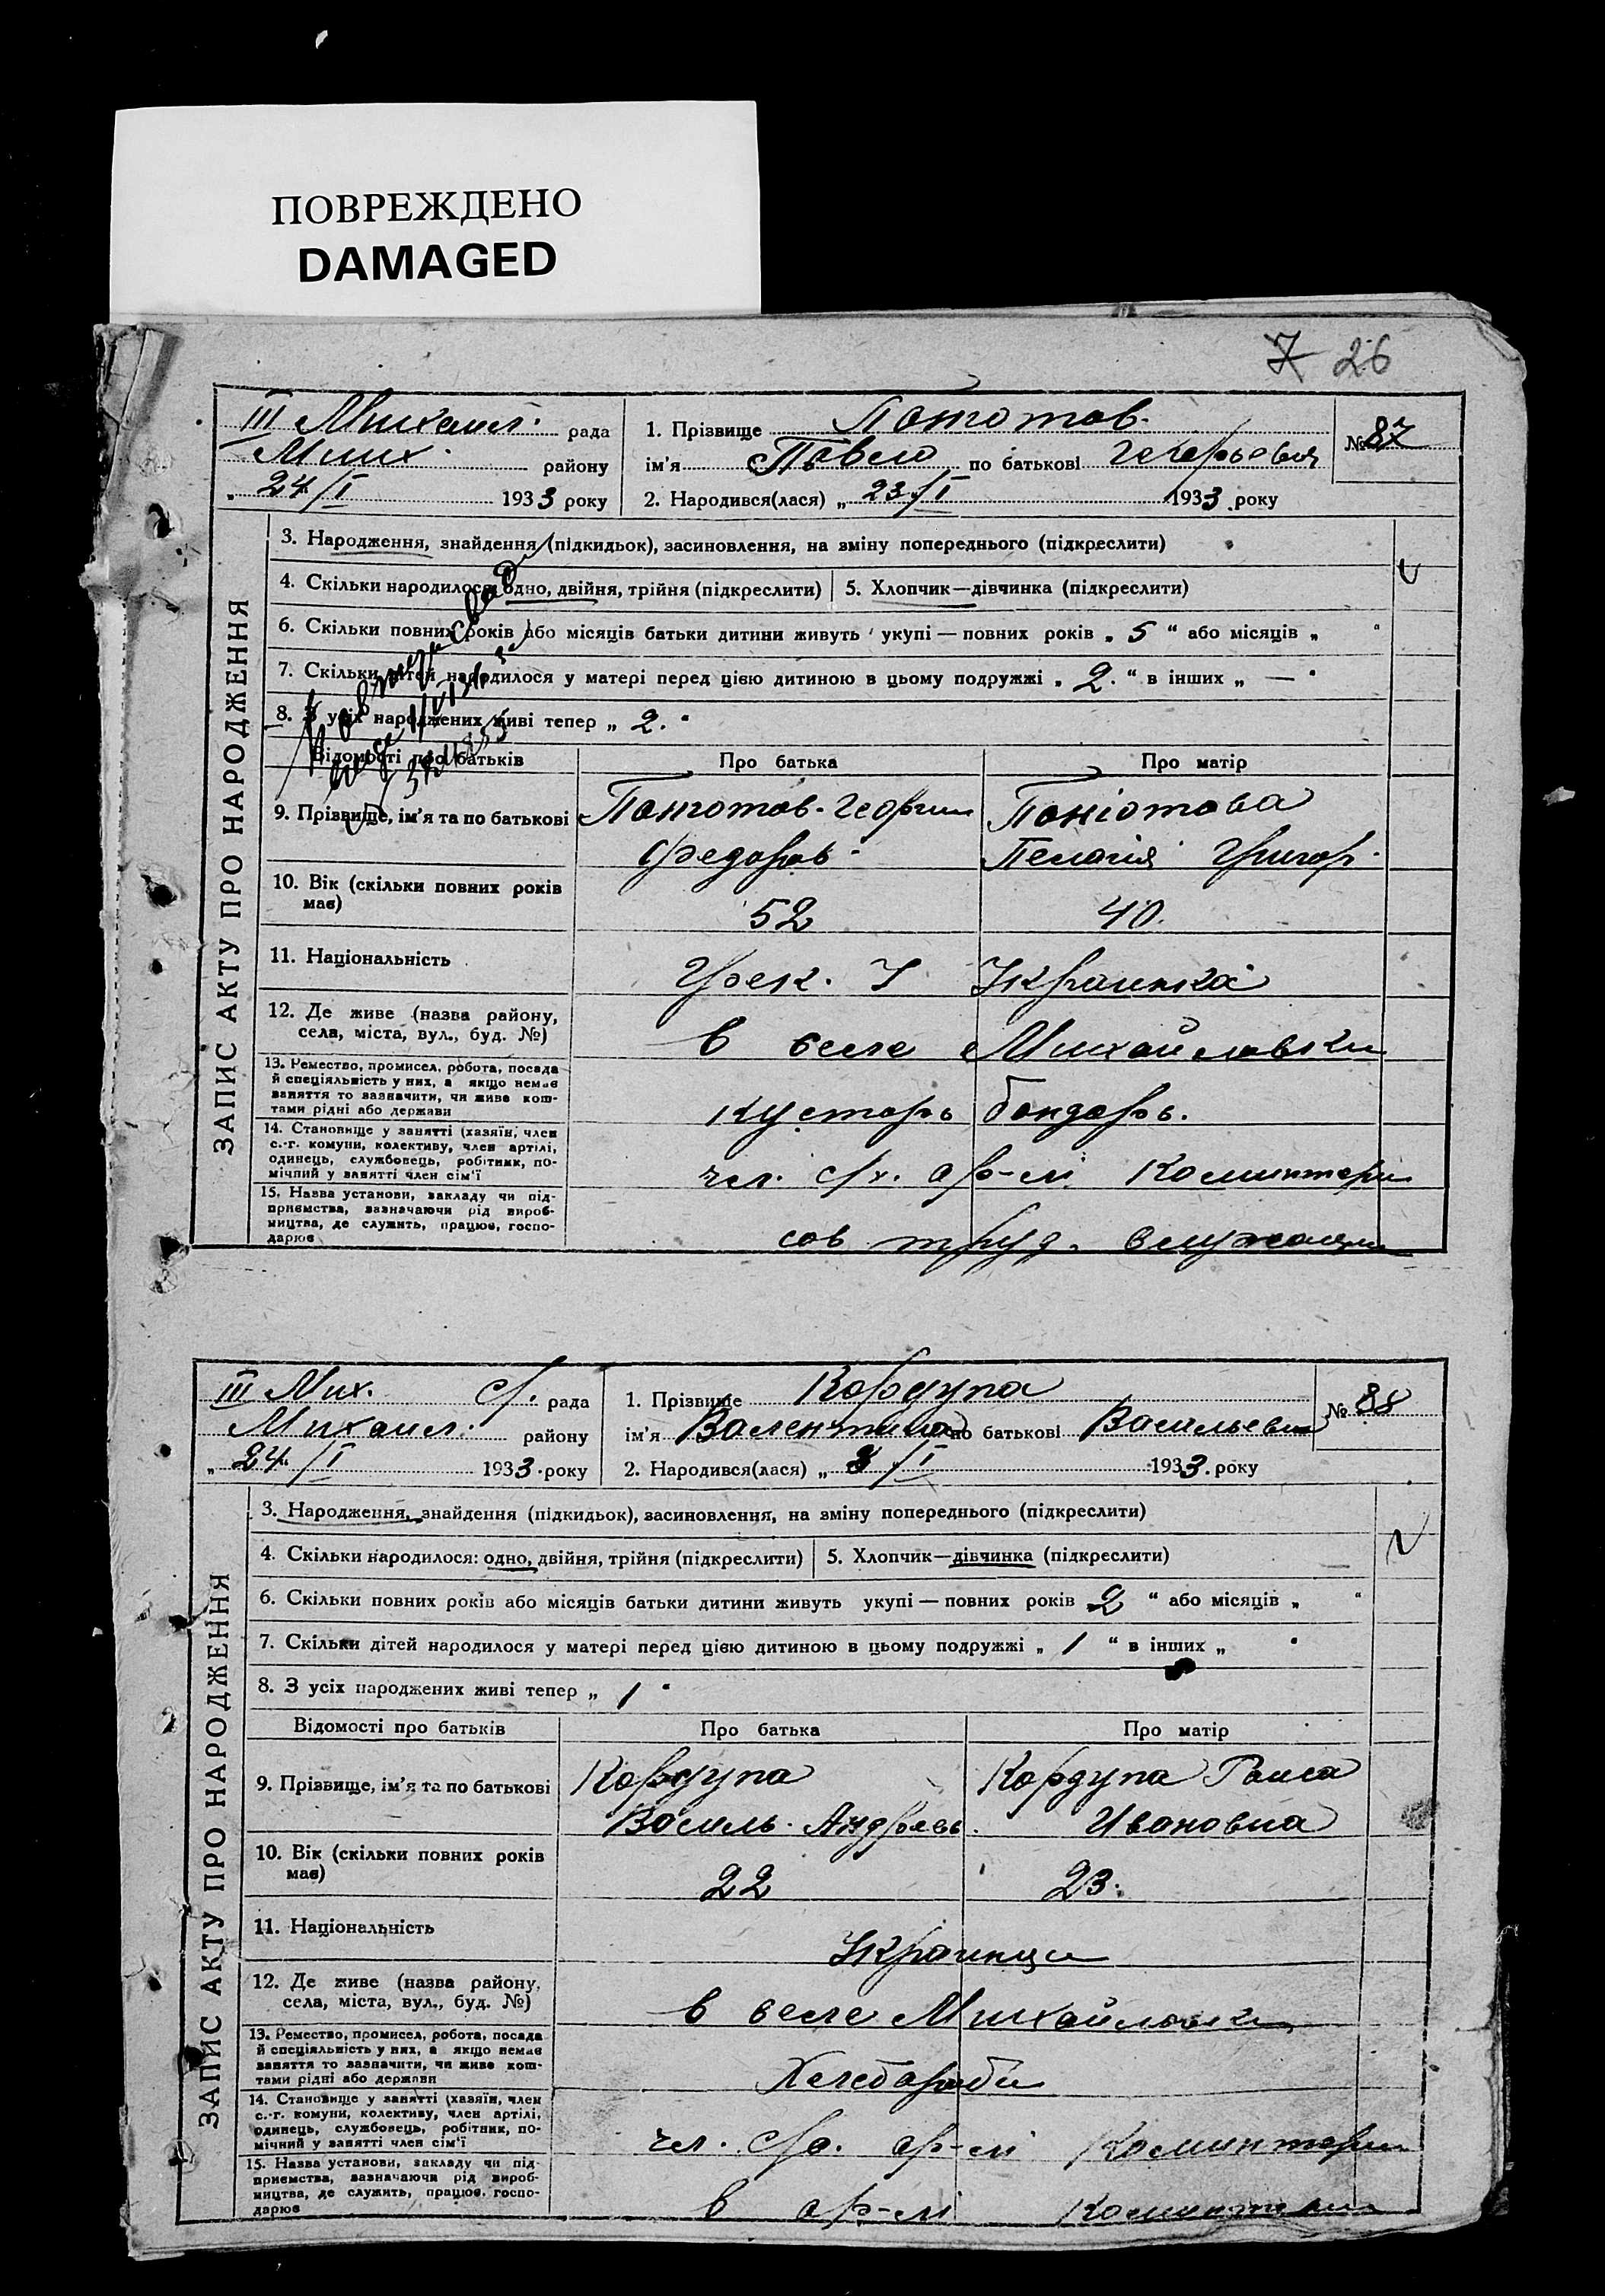 ПОВРЕЖДЕНО
DAMAGED
7 26
III Михаил. рада
Мих. району
„ 24/I 1933 року
1. Прізвище
ім'я Павло по батькові
2. Народився(лася) „ 23/I 1933 року
№ 87
ЗАПИС АКТУ ПРО НАРОДЖЕННЯ
3. Народження, знайдення (підкидьок), засиновлення, на зміну попереднього (підкреслити)
4. Скільки народилося: одно, двійня, трійня (підкреслити) 5. Хлопчик—дівчинка (підкреслити)
6. Скільки повних років або місяців батьки дитини живуть укупі — повних років „ 5 “ або місяців „ “
7. Скільки дітей народилося у матері перед цією дитиною в цьому подружжі „ 2. “ в інших „ — “
8. З усіх народжених живі тепер „ 2. “
Відомості про батьків Про батька Про матір
9. Прізвище, ім'я та по батькові
Федоров. Пелагія Григор.
10. Вік (скільки повних років
має) 52 40.
11. Національність Грек. Украинка
12. Де живе (назва району,
села, міста, вул., буд. №) в селе Михайловки
13. Ремество, промисел, робота, посада
й спеціяльність у них, а якщо немає
заняття то зазначити, чи живе кош-
тами рідні або держави кустарь бондарь.
14. Становище у занятті (хазяїн, член
с.-г. комуни, колективу, член артілі,
одинець, службовець, робітник, по-
мічний у занятті член сім'ї чл. ар-лі Коминтерн
15. Назва установи, закладу чи під-
приємства, зазначаючи рід вироб-
ництва, де служить, працює, госпо-
дарює сов труд. служащи
III Мих. с/. рада
Михаил. району
„ 24/I 1933 року
1. Прізвище Кордупа
ім'я Валентина по батькові Васильевна
2. Народився(лася) „ 3/I 1933 року
№ 88
ЗАПИС АКТУ ПРО НАРОДЖЕННЯ
3. Народження, знайдення (підкидьок), засиновлення, на зміну попереднього (підкреслити)
4. Скільки народилося: одно, двійня, трійня (підкреслити) 5. Хлопчик—дівчинка (підкреслити)
6. Скільки повних років або місяців батьки дитини живуть укупі — повних років 2 “ або місяців „ “
7. Скільки дітей народилося у матері перед цією дитиною в цьому подружжі „ 1 “ в інших „ “
8. З усіх народжених живі тепер „ 1 “
Відомості про батьків Про батька Про матір
9. Прізвище, ім'я та по батькові Кордупа Кордупа Раиса
Василь. Андреев. Ивановна
10. Вік (скільки повних років
має) 22 23.
11. Національність Украинци
12. Де живе (назва району,
села, міста, вул., буд. №) в селе Михайловки
13. Ремество, промисел, робота, посада
й спеціяльність у них, а якщо немає
заняття то зазначити, чи живе кош-
тами рідні або держави Хлебароби
14. Становище у занятті (хазяїн, член
с.-г. комуни, колективу, член артілі,
одинець, службовець, робітник, по-
мічний у занятті член сім'ї чл. ар-лі Коминтерн
15. Назва установи, закладу чи під-
приємства, зазначаючи рід вироб-
ництва, де служить, працює, госпо-
дарює в ар-лі Коминтерн